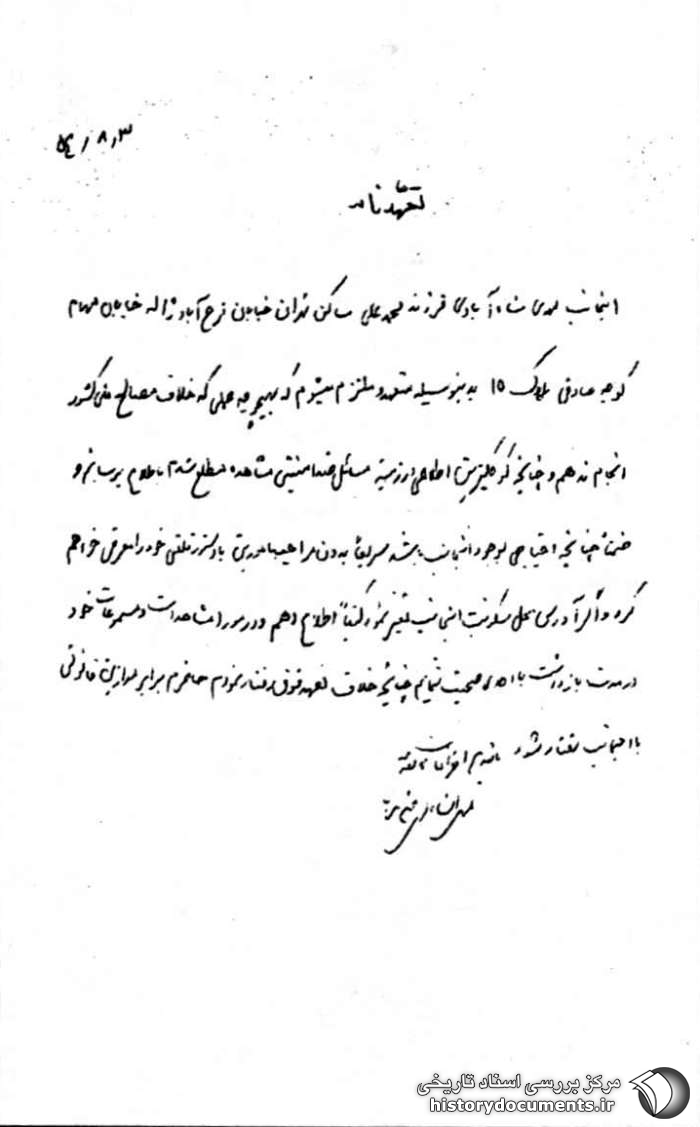 ۵۴/۸/۳
تعهدنامه
اینجانب مهدی شاه‌آبادی فرزند محمدعلی ساکن تهران خیابان فرح‌آباد ژاله خیابان
کوچه صادقی پلاک ۱۵ بدینوسیله متعهد و ملتزم میشوم که بهیچوجه عملی که خلاف مصالح ملی کشور
انجام ندهم و چنانچه اطلاعی از زمینه مسائل ضدامنیتی مشاهده مطلع شدم باطلاع برسانم و
ضمناً چنانچه احتیاجی بوجود اینجانب باشد سریعاً بدون با دستور تلفنی خود را معرفی خواهم
کرد و اگر آدرس محل سکونت اینجانب تغییر نمود کتباً اطلاع دهم و در مورد مشاهدات و مسموعات خود
در مدت بازداشت با احدی صحبت ننمایم چنانچه خلاف تعهد فوق رفتار نمودم حاضرم برابر موازین قانونی
با اینجانب رفتار شود
مرکز بررسی اسناد تاریخی
historydocuments.ir